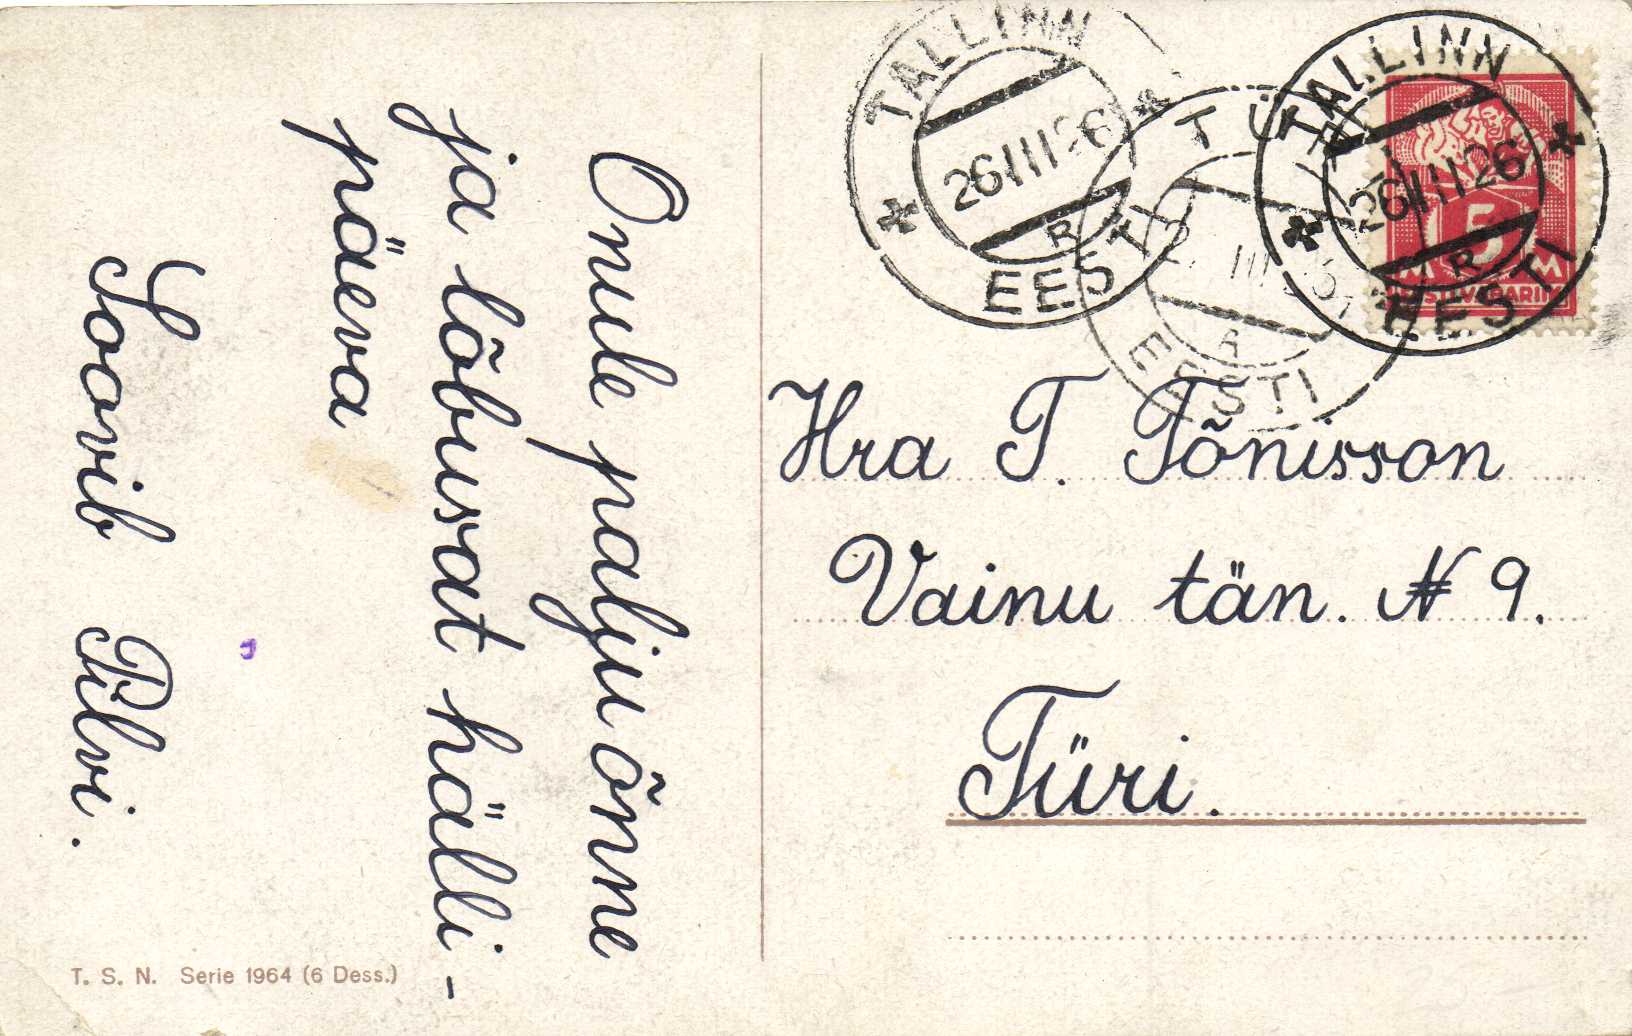 Onule palju õnne
ja lõbusat hälli-
päeva
Soovib Pilvi.
T. S. N. Serie 1964 (6 Dess.)
TALLINN
26 III 26
R
EESTI
TALLINN
26 III 26
R
EESTI
III
A
EESTI
5
Hra T. Tõnisson
Vainu tän. № 9.
Türi.